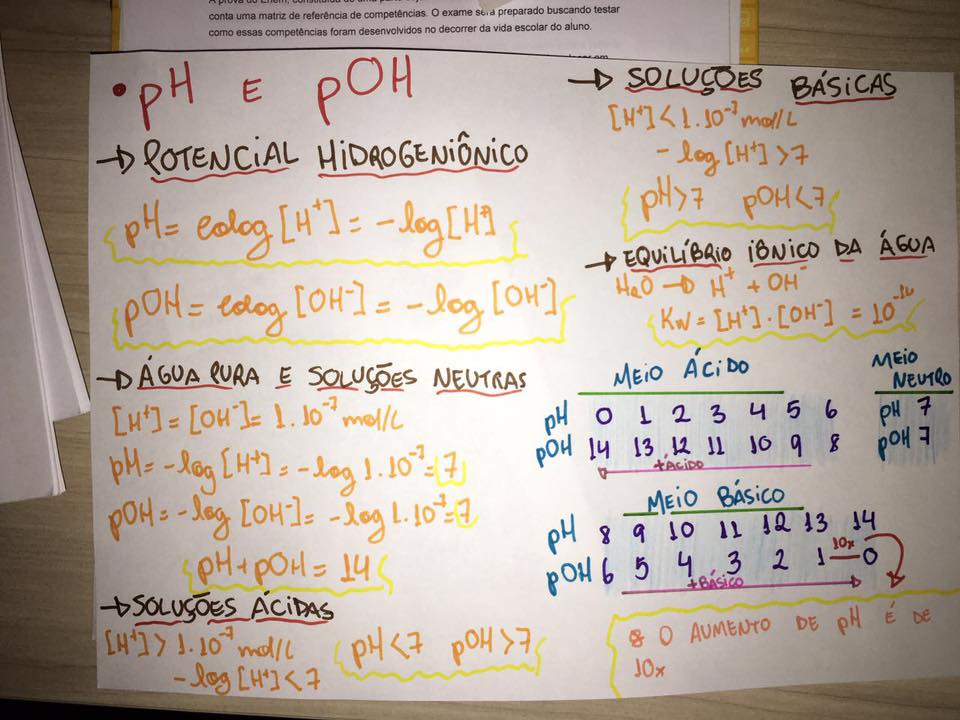 conta uma matriz de referência de competências. O exame será preparado buscando testar
como essas competências foram desenvolvidos no decorrer da vida escolar do aluno.
• pH E pOH
→ POTENCIAL HIDROGENIÔNICO
pH = colog [H⁺] = -log[H⁺]
pOH = colog [OH⁻] = -log [OH⁻]
→ ÁGUA PURA E SOLUÇÕES NEUTRAS
[H⁺] = [OH⁻] = 1.10⁻⁷ mol/L
pH = -log [H⁺] = -log 1.10⁻⁷ = 7
pOH = -log [OH⁻] = -log 1.10⁻⁷ = 7
pH + pOH = 14
→ SOLUÇÕES ÁCIDAS
[H⁺] > 1.10⁻⁷ mol/L
-log [H⁺] < 7
pH < 7 pOH > 7
→ SOLUÇÕES BÁSICAS
[H⁺] < 1.10⁻⁷ mol/L
-log [H⁺] > 7
pH > 7 pOH < 7
→ EQUILÍBRIO IÔNICO DA ÁGUA
H₂O → H⁺ + OH⁻
Kw = [H⁺] . [OH⁻] = 10⁻¹⁴
MEIO ÁCIDO
pH 0 1 2 3 4 5 6
pOH 14 13 12 11 10 9 8
+ÁCIDO
MEIO
NEUTRO
pH 7
pOH 7
MEIO BÁSICO
pH 8 9 10 11 12 13 14
pOH 6 5 4 3 2 1 0
10x
+BÁSICO
O AUMENTO DE pH É DE
10x